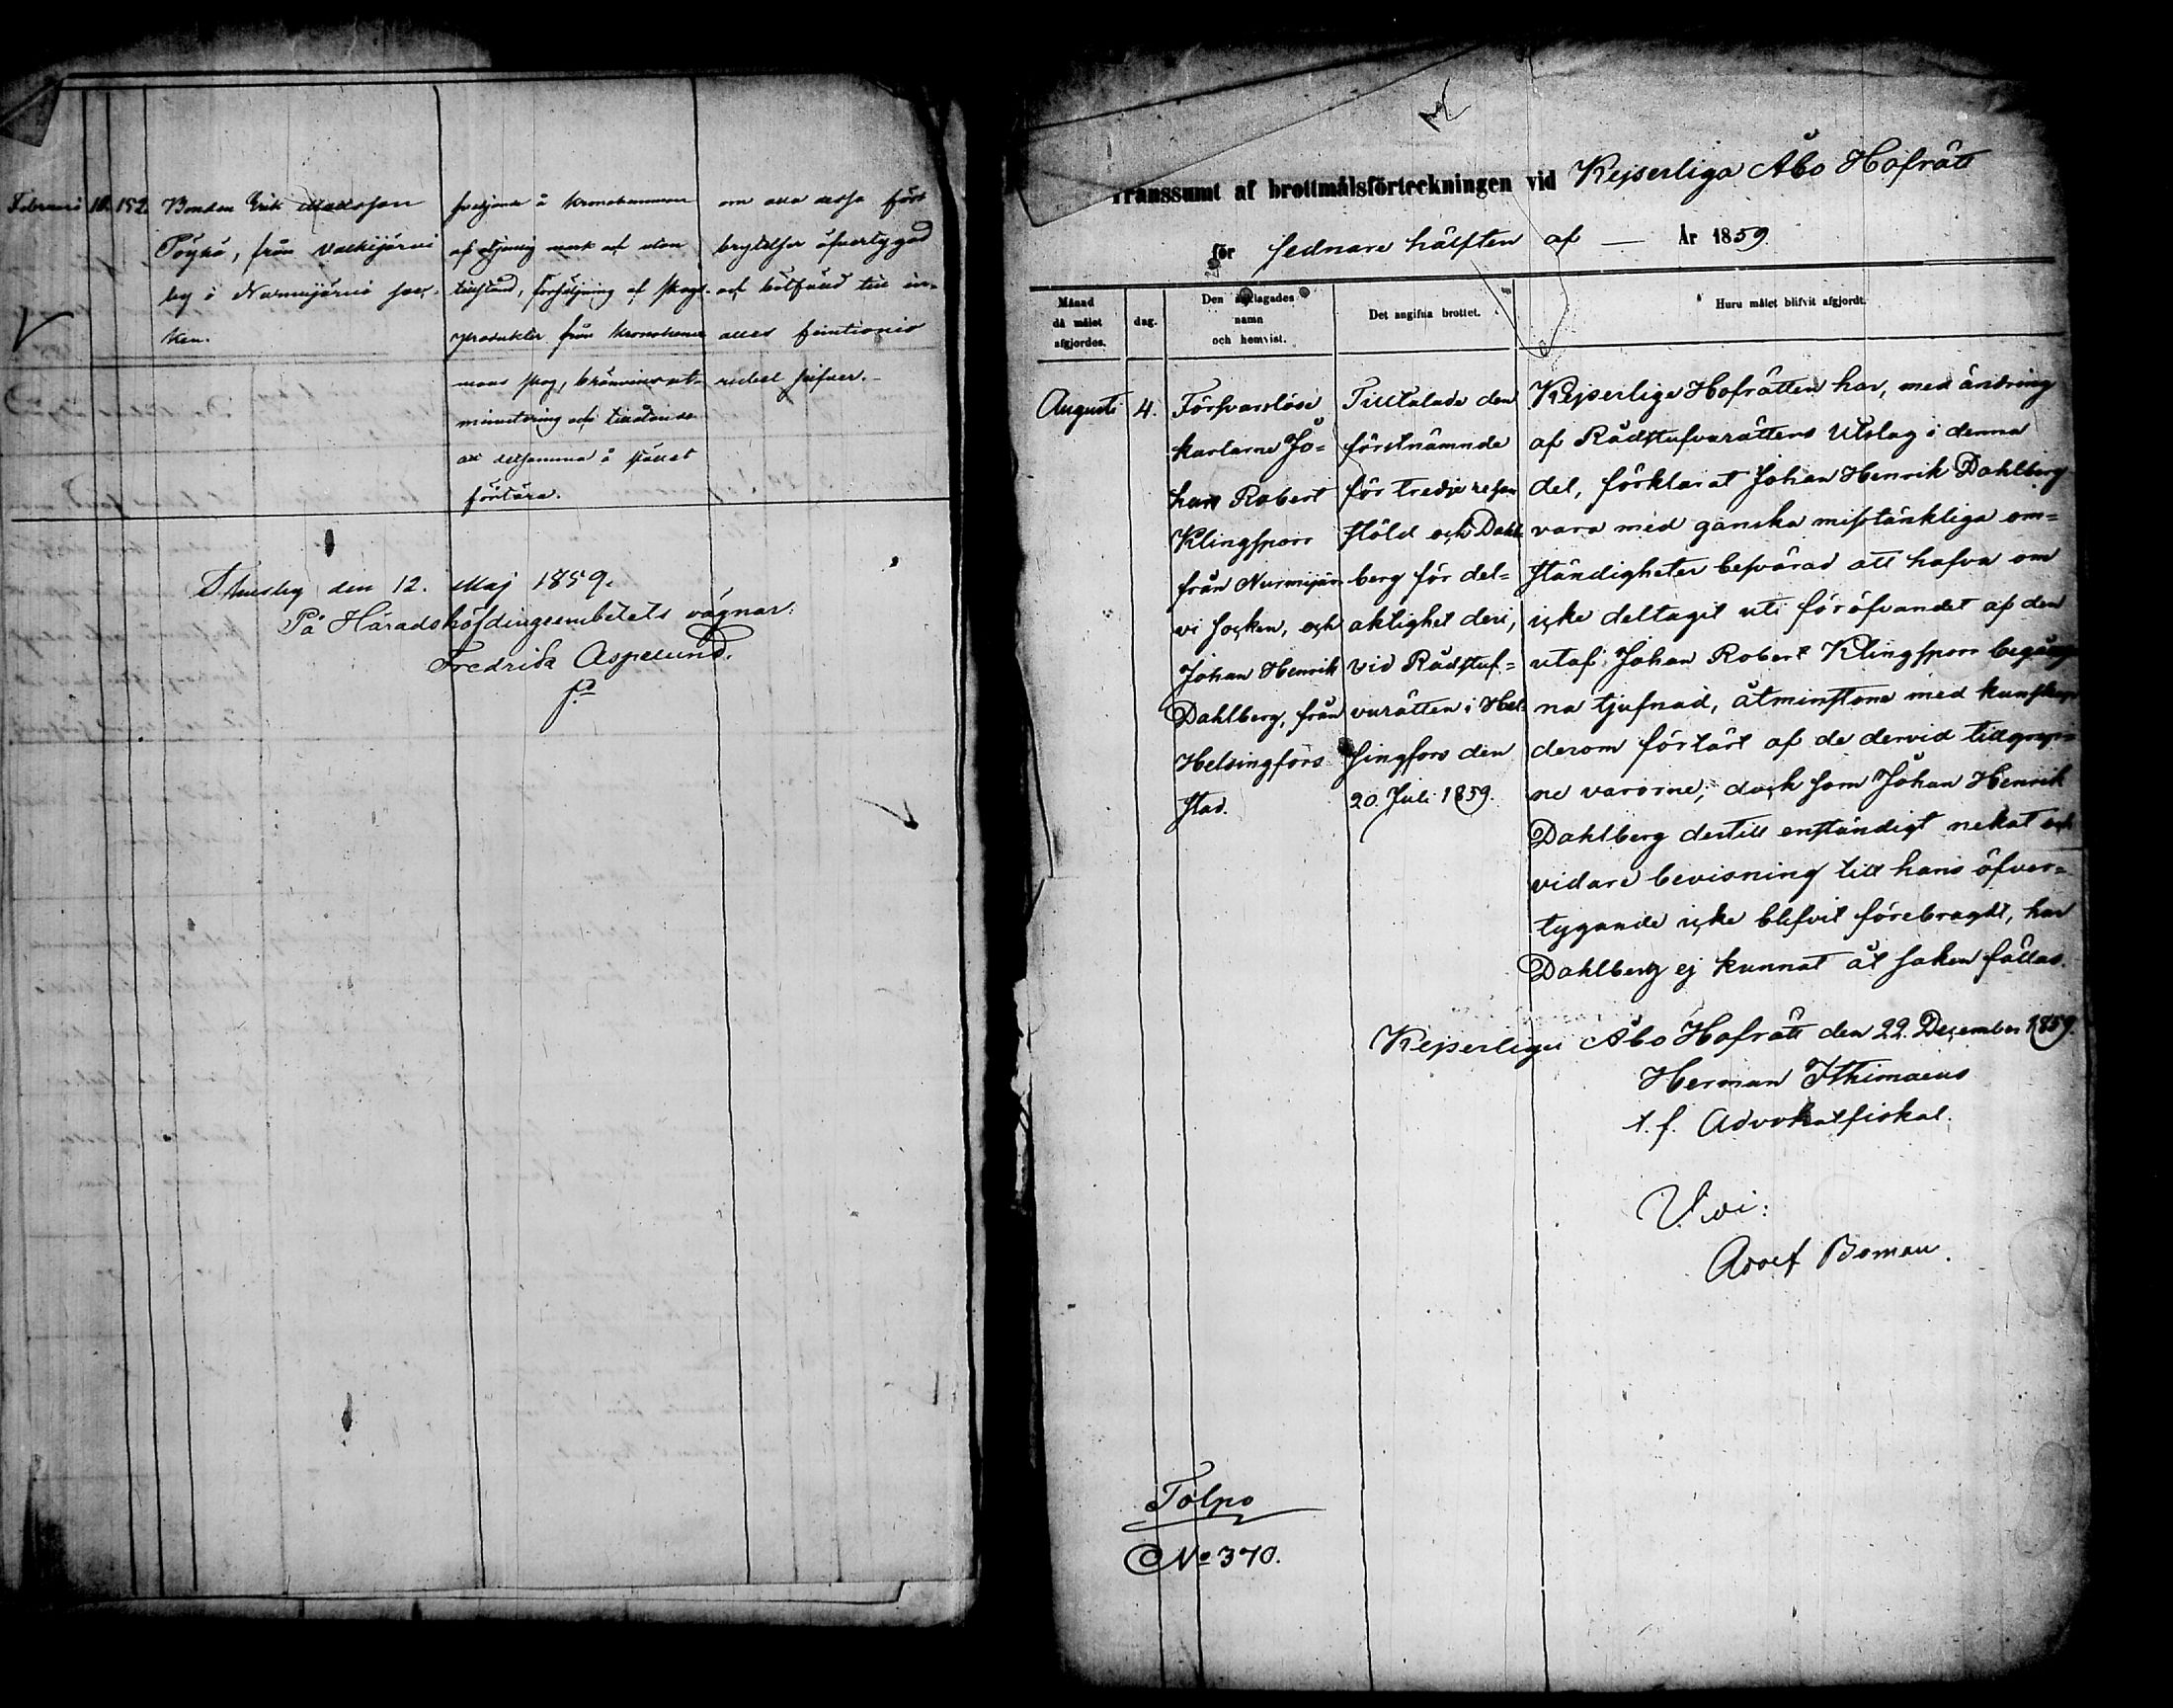 Februari 10. 152. Bonden Erik Mattsson
Pöykä, från Valkjärvi
by i Nurmijärvi soc-
ken.
svedjande å Kronohemman
af otjenlig mark och utan
tillstånd, försäljning af skogs-
produkter från Kronohem-
mans skog, brännvinsut-
minutering och tillåtande
att detsamma å stället
förtära.
om alla dessa för-
brytelser öfvertygad
och bötfälld till in-
alles
rubel silfver.
Thusby den 12. Maj 1859.
På Häradshöfdingeembetets vägnar:
Fredrik Aspelund.
Transsumt af brottmålsförteckningen vid Kejserliga Åbo Hofrätt
för sednare hälften af — År 1859.
Månad
då målet
afgjordes.
dag.
Den anklagades
namn
och hemvist.
Det angifna brottet.
Huru målet blifvit afgjordt.
Augusti 4.
Försvarslöse
karlarne Jo=
han Robert
Klingsporr
från Nurmijär-
vi socken, och
Johan Henrik
Dahlberg, från
Helsingfors
stad.
Tilltalade den
förstnämnde
för tredje resan
stöld och Dahl-
berg för del=
aktighet deri,
vid Rådstuf=
vurätten i Hel-
singfors den
20. Juli 1859.
Kejserliga Hofrätten har, med ändring
af Rådstufvurättens Utslag i denna
del, förklarat Johan Henrik Dahlberg
vara med ganska misstänkliga om=
ständigheter besvärad att hafva om
icke deltagit uti föröfvandet af den
utaf Johan Robert Klingsporr begång-
na tjufnad, åtminstone med kunskap
derom förtärt af de dervid tillgrip=
ne varorne; dock som Johan Henrik
Dahlberg dertill enständigt nekat och
vidare bevisning till hans öfver=
tygande icke blifvit förebragdt, har
Dahlberg ej kunnat åt saken fällas.
Kejserliga Åbo Hofrätt den 22. December 1859.
Herman Ithimaeus
t. f. Advokatfiskal.
V. vi:
Adolf Boman.
Tolpo
No 370.